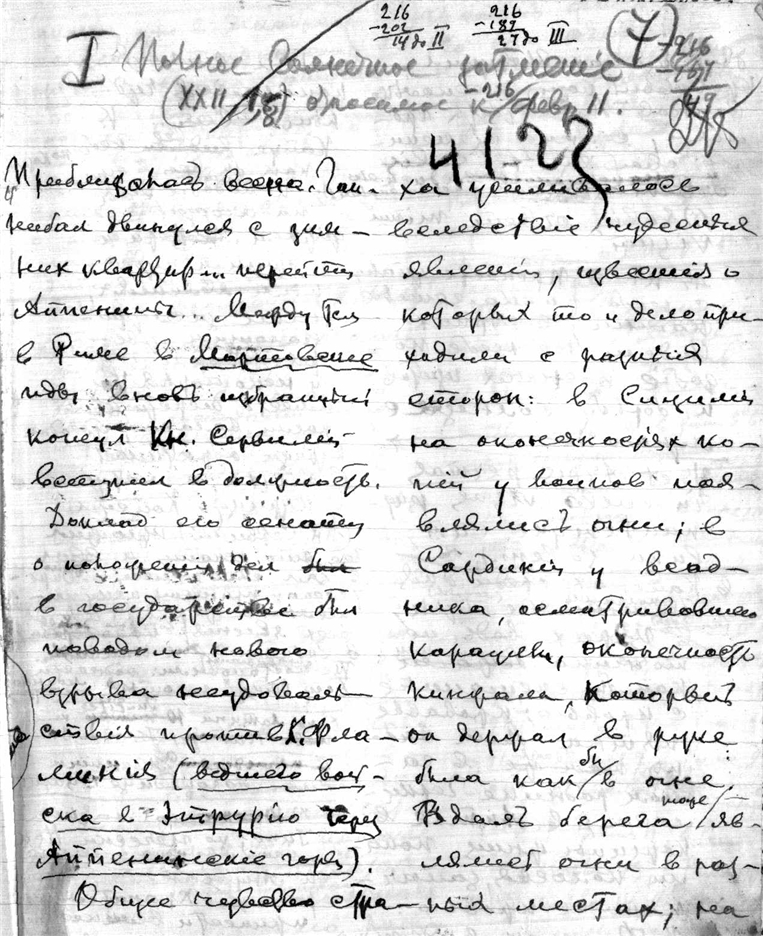 216
-202
14 до II
216
-189
27 до III
7
-216
I Полное Солнечное затменіе
(XXII 1,8) бросаемое к февр 11.
-216
4123
Приближалась весна. Ган-
нибал двинулся с зим-
них квартир и перейти
Аппенины... Между тем
в Риме в Мартовские
иды вновь избранный
консул Кн. Сервилий
вступил в должность.
Доклад его сенату
о положении дел был
в государстве был
поводом нового
взрыва неудоволь-
ствия против К. Фла-
миния (ведшего вой-
ска в Этрурию через
Аппенинскіе горы).
Общее чувство стра-
ха усиливалось
вследствіе чудесных
явленій, известия о
которых то и дело при-
ходили с разных
сторон: в Сицилии
на оконечностях ко-
пий у воинов поя-
влялись огни; в
Сардинии у всад-
ника, осматривавшего
караулы, оконечность
кинжала, который
он держал в руке
была как бы в огне.
Вдоль берега тоже яв-
лялись огни в раз-
ных местах; на